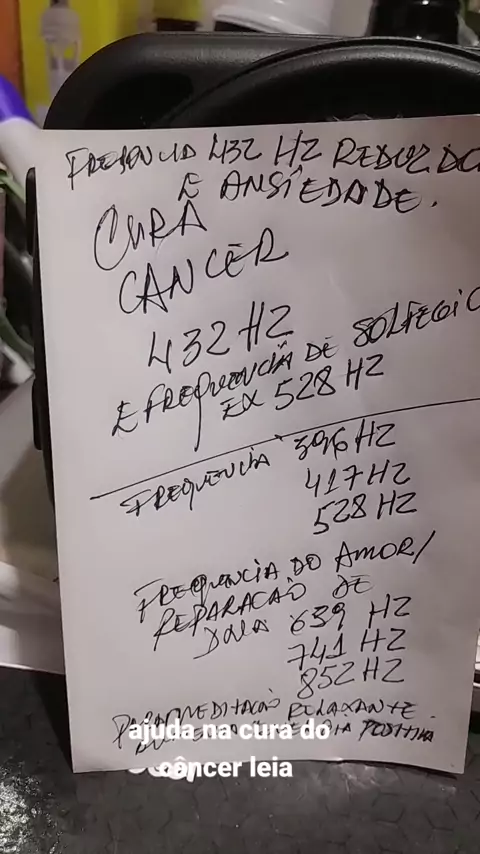 FREQUENCIA 432 HZ REDUZ DO
E ANSIEDADE.
CURA
CANCER
432 HZ
E FREQUENCIA DE SOLFEGIO
EX 528 HZ
FREQUENCIA 396 HZ
417 HZ
528 HZ
FREQUENCIA DO AMOR/
REPARACAO DE
DNA 639 HZ
741 HZ
852 HZ
PARA MEDITACAO RELAXANTE
POSITIVA
ajuda na cura do
câncer leia